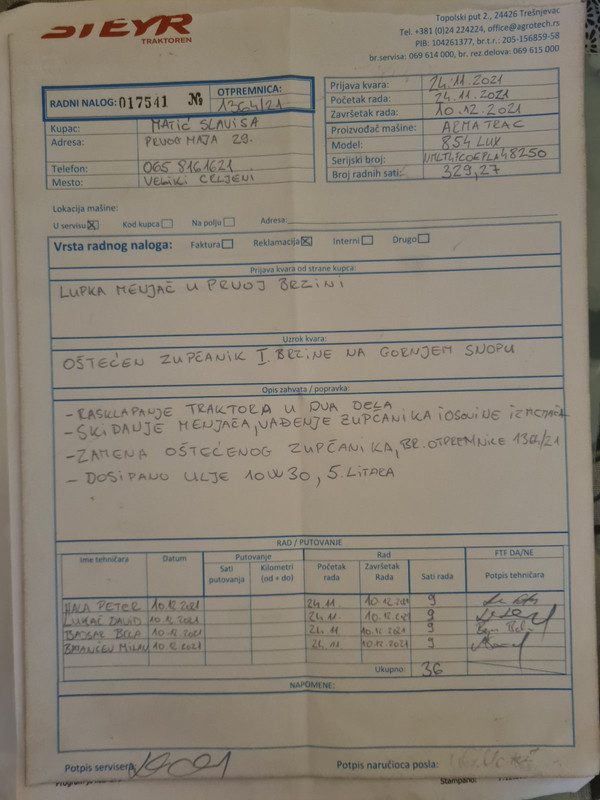 STEYR
TRAKTOREN
Topolski put 2., 24426 Trešnjevac
Tel. +381 (0)24 224224, office@agrotech.rs
PIB: 104261377, br.t.r.: 205-156859-58
br.servisa: 069 614 000, br. rez.delova: 069 615 000
RADNI NALOG: 017541 № OTPREMNICA: 1364/21
Kupac: MATIĆ SLAVIŠA
Adresa: PRVOG MAJA 29.
Telefon: 065 8161621
Mesto: VELIKI CRLJENI
Prijava kvara: 24.11.2021
Početak rada: 24.11.2021
Završetak rada: 10.12.2021
Proizvođač mašine: ARMATRAC
Model: 854 LUX
Serijski broj:
Broj radnih sati: 329,27
Lokacija mašine:
U servisu Kod kupca Na polju Adresa:
Vrsta radnog naloga: Faktura Reklamacija Interni Drugo
Prijava kvara od strane kupca:
LUPKA MENJAČ U PRVOJ BRZINI
Uzrok kvara:
OŠTEĆEN ZUPČANIK I BRZINE NA GORNJEM SNOPU
Opis zahvata / popravka:
- RASKLAPANJE TRAKTORA U DVA DELA
- SKIDANJE MENJAČA, VAĐENJE ZUPČANIKA I OSOVINE IZ MENJAČA
- ZAMENA OŠTEĆENOG ZUPČANIKA, BR. OTPREMNICE 1364/21
- DOSIPANO ULJE 10W30, 5. LITARA
RAD / PUTOVANJE
Ime tehničara Datum Putovanje Rad FTF DA/NE
Sati putovanja Kilometri (od + do) Početak rada Završetak Rada Sati rada Potpis tehničara
HALA PETER 10.12.2021 24.11. 10.12.2021 9
LUKAČ DAVID 10.12.2021 24.11. 10.12.2021 9
BELA 10.12.2021 24.11 10.12.2021 9
MILAN 10.12.2021 24.11 10.12.2021 9
Ukupno: 36
NAPOMENE:
Potpis servisera: Potpis naručioca posla:
Stampano: